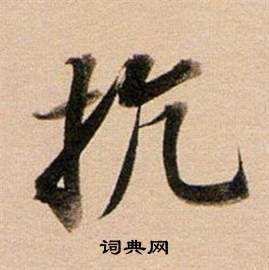 抗
词典网